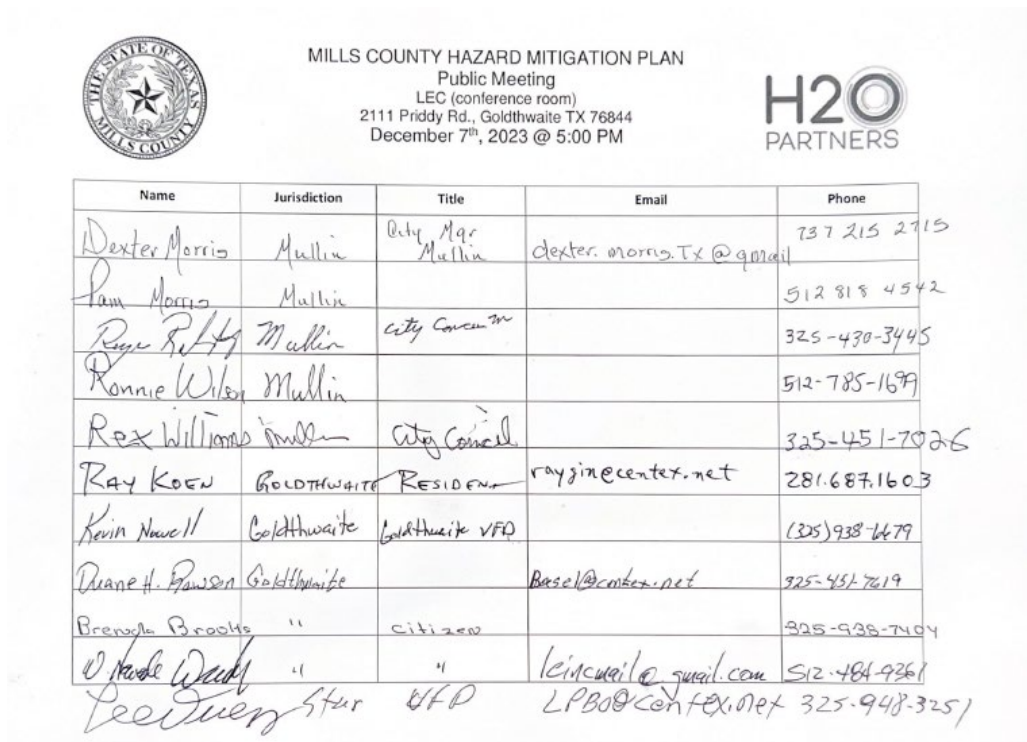 THE STATE OF TEXAS
MILLS COUNTY
MILLS COUNTY HAZARD MITIGATION PLAN
Public Meeting
LEC (conference room)
2111 Priddy Rd., Goldthwaite TX 76844
December 7th, 2023 @ 5:00 PM
H2O
PARTNERS
Name Jurisdiction Title Email Phone
Dexter Morris Mullin City Mgr Mullin dexter.morris.Tx@gmail 737 215 2715
Pam Morris Mullin 512 818 4542
Mullin City 325-430-3445
Ronnie Wilson Mullin 512-785-1699
Rex Williams Mullin City Council 325-451-7026
RAY KOEN GOLDTHWAITE RESIDENT rayzin@centex.net 281.687.1603
Kevin Newell Goldthwaite Goldthwaite VFD (325)938-6679
Duane H. Goldthwaite 325-451-7619
Brenda Brooks " citizen 325-938-7404
" " kincmail@gmail.com 512-484-9361
Star VFD LPBO@centex.net 325-948-3251